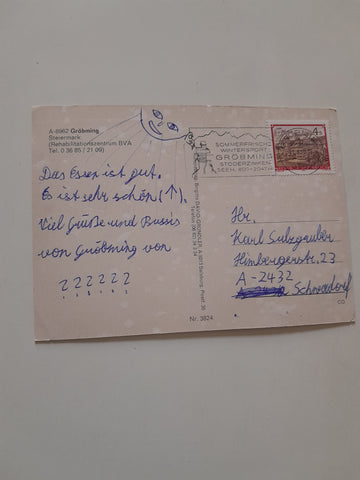 A-8962 Gröbming
Steiermark
(Rehabilitationszentrum BVA
Tel. 0 36 85 / 21 09)
Das Essen ist gut.
Es ist sehr schön (↑).
Viel Grüße und Bussis
von Gröbming von
? ? ? ? ? ?
SOMMERFRISCHE
WINTERSPORT
GRÖBMING
STODERZINKEN
SEEH. 800-2047m
4
Hr.
Karl Sulzgruber
Himbergerstr. 23
A-2432
Schwadorf
Nr. 3824
CO